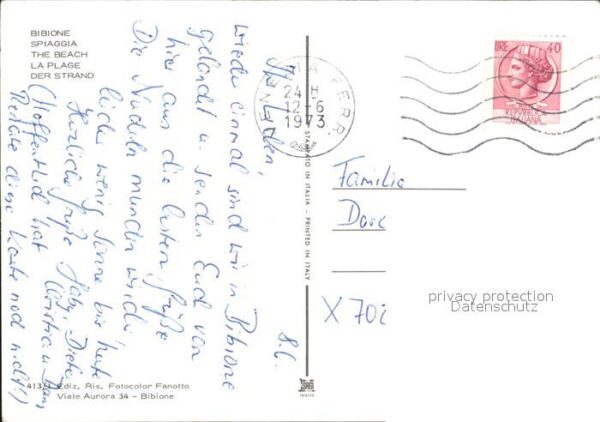 BIBIONE
SPIAGGIA
THE BEACH
LA PLAGE
DER STRAND
8.6.
Ihr Lieben,
wieder einmal sind wir in Bibione
gelandet u. senden Euch von
hier aus die besten Grüße
Die Nudeln munden wieder
leider wenig Sonne bis heute
Herzliche Grüße
(Hoffentlich hat
diese Karte noch nicht!)
413 Ediz. Ris. Fotocolor Fanotto
Viale Aurora 34 - Bibione
STAMPATO IN ITALIA - PRINTED IN ITALY
24 H
12-6
1973
LIRE 40
REPVBBLICA
ITALIANA
Familie
X 702
privacy protection
Datenschutz